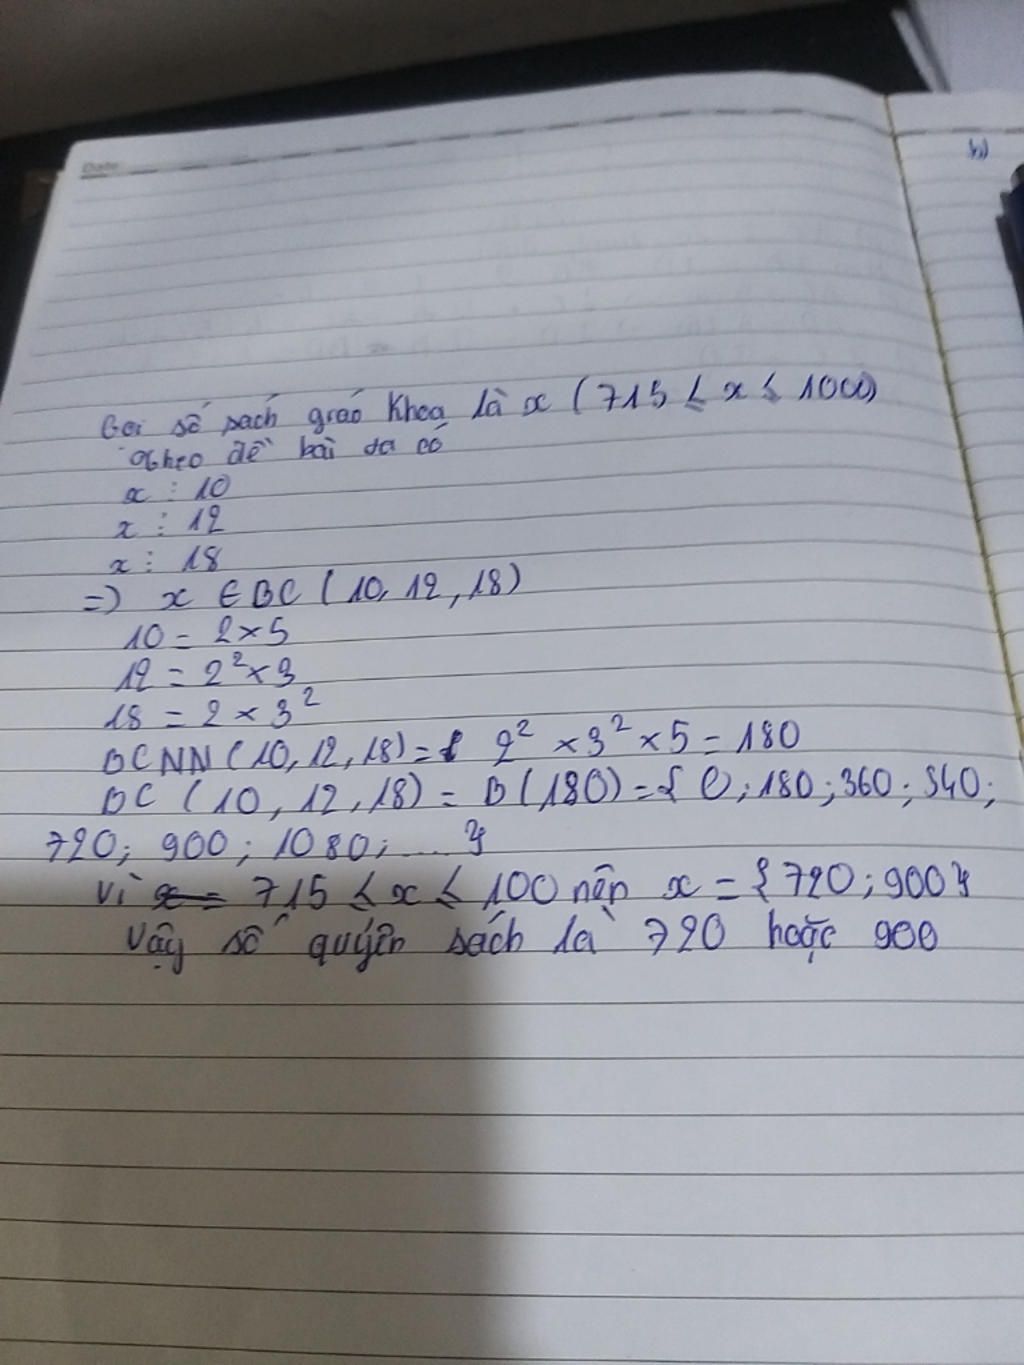 Date
b)
Gọi số sách giáo khoa là x (715 ≤ x ≤ 1000)
Theo đề bài ta có
x ⋮ 10
x ⋮ 12
x ⋮ 18
=) x ∈ BC (10, 12, 18)
10 = 2 x 5
12 = 2² x 3
18 = 2 x 3²
BCNN (10, 12, 18) = 2² x 3² x 5 = 180
BC (10, 12, 18) = B (180) = { 0; 180; 360; 540;
720; 900; 1080; ... }
Vì 715 ≤ x ≤ 100 nên x = {720; 900}
Vậy số quyển sách là 720 hoặc 900